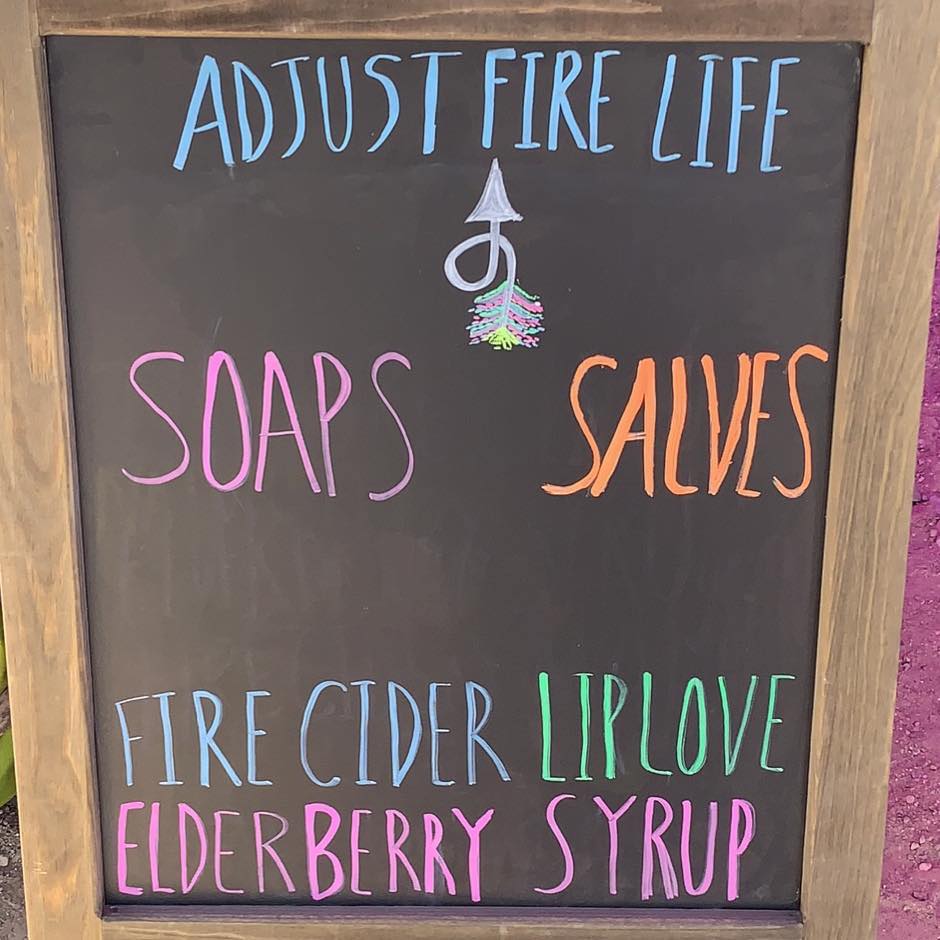 ADJUST FIRE LIFE
SOAPS SALVES
FIRE CIDER LIPLOVE
ELDERBERRY SYRUP